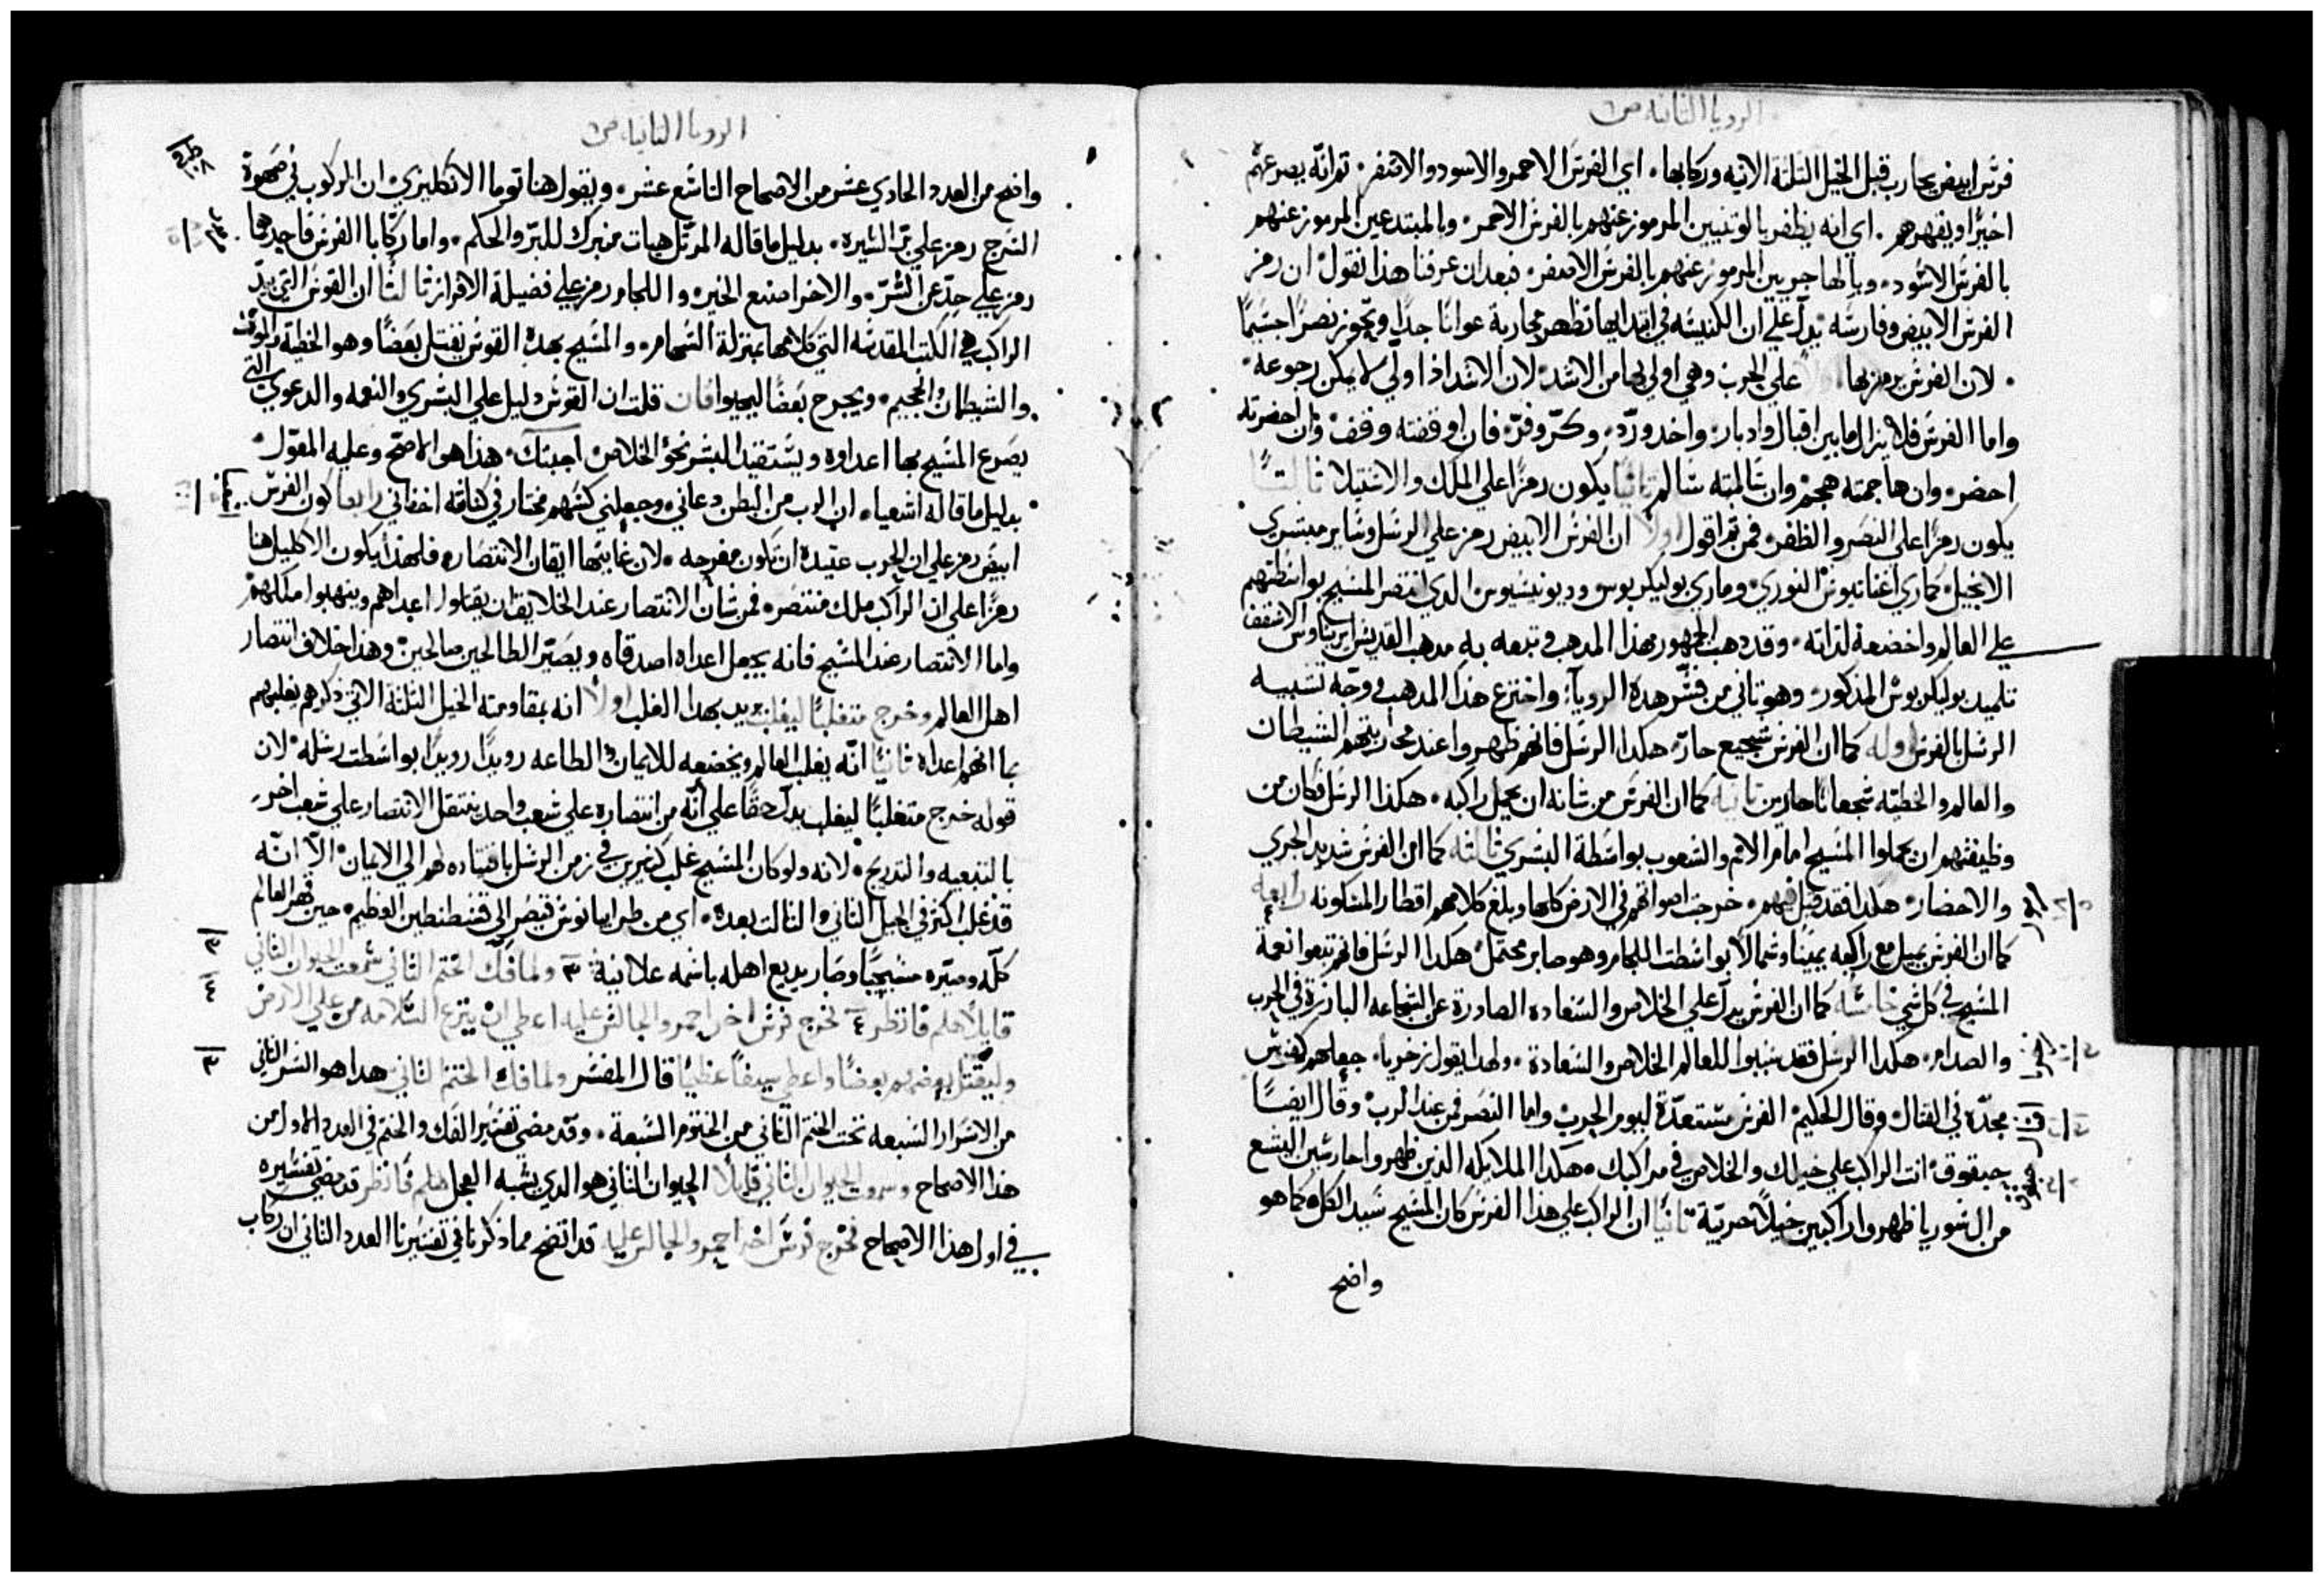 الرويا الثانيه ص٦
فرس ابيض يحارب قبل الخيل الثلثة الاتيه وركابها. اي الفرس الاحمر والاسود والاصفر. ثم انه يصرعهم
اخيرًا ويقهرهم. اي انه يظفر بالوثنيين المرموز عنهم بالفرس الاحمر. وبالمبتدعين المرموز عنهم
بالفرس الاسود. وبالهاجريين المرموز عنهم بالفرس الاصفر. فبعد ان عرفنا هذا نقول ان رمز
الفرس الابيض وفارسه يدل علي ان الكنيسه في ابتدايها تظهر محاربة عوانًا جدًا وتحوز نصرًا جسيمًا
لان الفرس يرمز بها علي الحرب وهي اولي بها من الاسد لان الاسد اذا ولي لا يمكن رجوعه
واما الفرس فلا يزال ما بين اقبال وادبار واخد وردّ. وكرّ وفرّ. فان اوقفته وقف وان احضرته
احضر. وان هاجمته هجم وان سالمته سالم ثانيًا يكون رمزًا علي الملك والاستيلا ثالثًا
يكون رمزًا علي النصر والظفر. فمن ثم اقول اولًا ان الفرس الابيض رمز علي الرسل وساير مبشري
الانجيل كماري اغناتيوس النوري وماري بوليكربوس وديونيسيوس الدي انتصر المسيح بواسطتهم
علي العالم واخضعه لذاته. وقد دهب الجمهور بهذا المدهب وتبعه به مدهب القديس ايريناوس الاسقف
تلميد بوليكربوس المدكور. وهو تاني من فسّر هده الرويا. واخترع هذا المدهب ووجّه تشبيه
الرسل بالفرس اوله كما ان الفرس شجيع حارّ. هكدا الرسل فانهم ظهروا عند محاربتهم الشيطان
والعالم والخطيه شجعانًا حارين ثانيه كما ان الفرس من شانه ان يحمل راكبه. هكذا الرسل فكان من
وظيفتهم ان يحملوا المسيح امام الامم والشعوب بواسطة البشري ثالثه كما ان الفرس شديد الجري
والاحضار. هكدا فقد قيل فيهم. خرجت اصواتهم في الارض كلها وبلغ كلامهم اقطار المسكونه رابعه
كما ان الفرس يميل مع راكبه يمينًا وشمالًا بواسطت اللجام وهو صابر محتمل هكدا الرسل فانهم تبعوا نعمة
المسيح في كل شي خامسه كما ان الفرس يدل علي الخلاص والسعاده الصادرة عن الشجاعه البارزة في الحرب
والصدام. هكدا الرسل فقد سببوا للعالم الخلاص والسعادة. ولهدا يقول زخريا. جعلهم كفرس
مجدّه في القتال وقال الحكيم الفرس مستعدّة ليوم الحرب واما النصر فمن عند الرب وقال ايضًا
حبقوق انت الراكب علي خيلك والخلاص في مراكبك. هكدا الملايكه الدين ظهروا حارسين اليشع
من السوريا ظهروا راكبين خيلًا حربيّة ثانيًا ان الراكب علي هذا الفرس كان المسيح سيد الكل كما هو
واضح
الرويا الثانيه ص٦
واضح من العدد الحادي عشر من الاصحاح التاسع عشر. ويقول هنا توما الانكليزي ان الركوب في صهوة
السرج رمز علي السيره. بدليل ما قاله المرتل هيات منبرك للبرّ والحكم. واما ركابا الفرس فاحدهما
رمز علي حدّ عن الشرّ. والاخر اصنع الخير. واللجام رمز علي فضيلة الافراز ثالثًا ان القوس التي بيد
الراكب هي الكتب المقدسه التي كلامها بمنزلة السهام. والمسيح بهده القوس يقتل بعضًا وهو الخطيه والموت
والشيطان والجحيم. ويجرح بعضًا ليحيوا فان قلت ان القوس دليل علي البشري والنعمه والدعوي التي
يصرع المسيح بها اعداوه ويستقيد البشر نحو الخلاص اجبتك. هذا هو الاصح وعليه المعوّل
بدليل ما قاله اشعيا. ان الرب من البطن دعاني. وجعلني كسهم مختار في كنانته اخفاني رابعا كون الفرس
ابيض رمز علي ان الحرب عتيدة ان تكون مفرحه. لان غايتها ايقان الانتصار. فلهذا يكون الاكليل هنا
رمزًا علي ان الراكب ملك منتصر. فمن شان الانتصار عند الخلايق ان يقتلوا اعداهم وينهبوا مملكتهم
واما الانتصار عند المسيح فانه يجعل اعداه اصدقاه ويصيّر الطالحين صالحين وهذا خلاف انتصار
اهل العالم وخرج متغلبًا ليغلب يريد بهدا الغلب اولًا انه بمقاومته الخيل الثلثة الاتي ذكرهم يغلبهم
بما انهم اعداه ثانيًا انّه يغلب العالم ويخضعه للايمان والطاعه رويدًا رويدًا بواسطت رسله لان
قوله خرج متغلبًا ليغلب يدل حقًا علي انّه من انتصاره علي شعب واحد ينتقل الانتصار علي شعب اخر
بالتبعيه والتدريج. لانه ولو كان المسيح غلب كثيرين في زمن الرسل باقتياده لهم الي الايمان الّا انّه
قد غلب اكثر في الجيل الثاني والثالث بعده. اي من طرايانوس قيصر الي قسطنطين العظيم. حين قهر العالم
كلّه وصيّره مسيحيًا وصار يديع اهله باسمه علانية ٣ ولما فك الختم الثاني سمعت الحيوان الثاني
قايلًا هلم فانظر ٤ فخرج فرس اخر احمر والجالس عليه اعطي ان ينتزع السّلامه من علي الارض
وليقتل بعضهم بعضًا واعطي سيفًا عظيمًا قال المفسّر ولما فك الختم الثاني هدا هو السّر الثاني
من الاسرار السبعه تحت الختم الثاني من الختوم السبعة. وقد مضي تفسير الفك والختم في العدد الاول من
هذا الاصحاح وسمعت الحيوان الثاني قايلًا الحيوان الثاني هو الدي يشبه العجل هلم فانظر قد مضي تفسيره
في اول هذا الاصحاح فخرج فرس اخر احمر والجالس عليه قد اتضح مما ذكرنا في تفسيرنا العدد الثاني ان ركاب